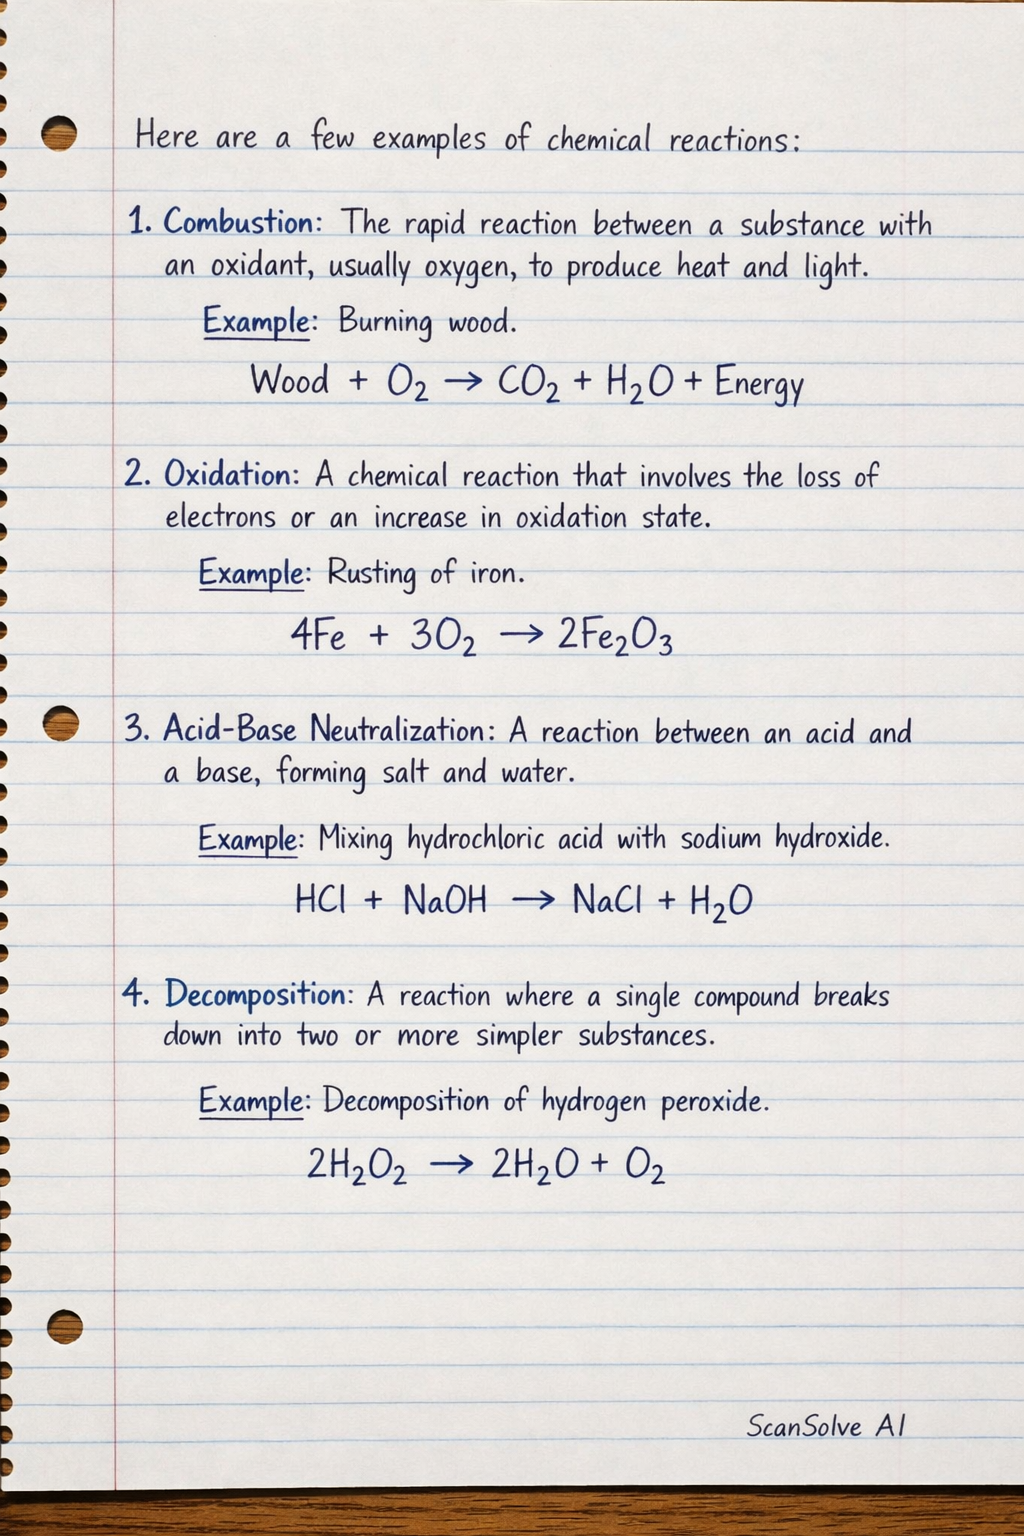 Here are a few examples of chemical reactions:
1. Combustion: The rapid reaction between a substance with
an oxidant, usually oxygen, to produce heat and light.
Example: Burning wood.
Wood + O₂ → CO₂ + H₂O + Energy
2. Oxidation: A chemical reaction that involves the loss of
electrons or an increase in oxidation state.
Example: Rusting of iron.
4Fe + 3O₂ → 2Fe₂O₃
3. Acid-Base Neutralization: A reaction between an acid and
a base, forming salt and water.
Example: Mixing hydrochloric acid with sodium hydroxide.
HCl + NaOH → NaCl + H₂O
4. Decomposition: A reaction where a single compound breaks
down into two or more simpler substances.
Example: Decomposition of hydrogen peroxide.
2H₂O₂ → 2H₂O + O₂
ScanSolve AI